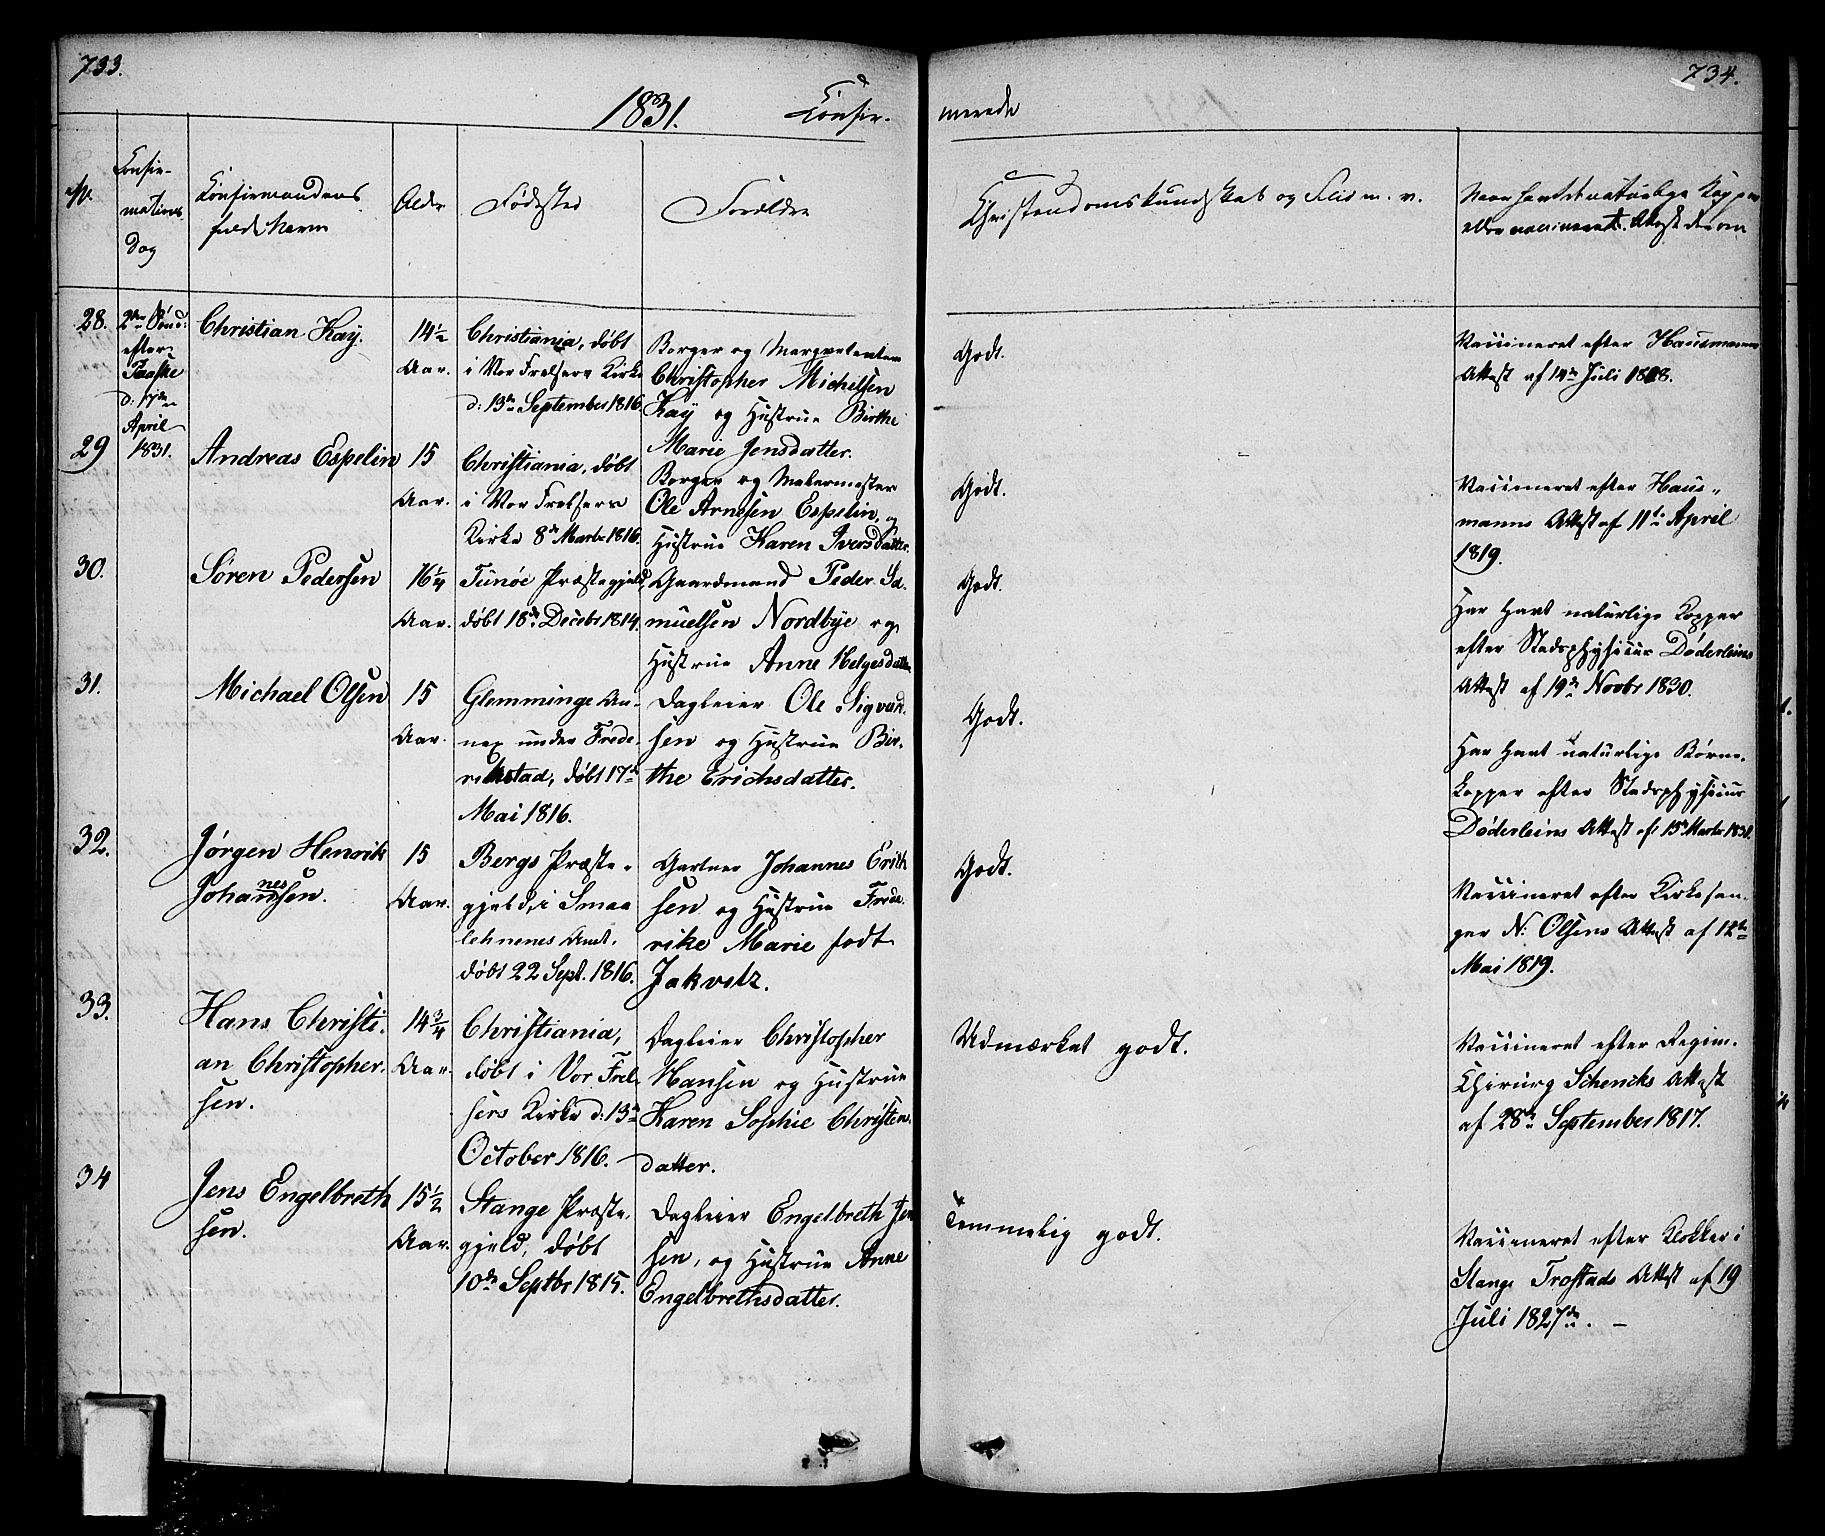 733.
734.
1831.
Confir-
merede
No.
Confir-
mations
Dag
Confirmandens
fulde Navn
Alder
Fødested
Forældre
Christendomskundskab og Flid m. v.
Naar havt de naturlige Kopper
eller vaccineret. Attest derom
28.
2den Sønd:
efter
Paaske
d: 17de
April
1831.
Christian Kay.
14½
Aar.
Christiania, døbt
i Vor Frelsers Kirke
d: 13de September 1816.
Borger og Marqvetenten
Christopher Michelsen
Kay og Hustrue Birthe
Marie Jensdatter.
Godt.
Vaccineret efter Hausmanns
Attest af 14de Juli 1818.
29
Andreas Espelin
15
Aar.
Christiania, døbt
i Vor Frelsers
Kirke 8de Marts 1816.
Borger og Malermester
Ole Arnesen Espelin, og
Hustrue Karen Iversdatter.
Godt.
Vaccineret efter Haus-
manns Attest af 11te April
1819.
30.
Søren Pedersen
16¼
Aar.
Tunøe Præstegjeld,
døbt 18de Decebr 1814.
Gaardmand Peder Sa-
muelsen Nordbye og
Hustrue Anne Helgesdatter
Godt.
Har havt naturlige Kopper
efter Stadsphysicus Døderleins
Attest af 19de Novbr 1830.
31.
Michael Olsen
15
Aar.
Glemminge An-
nex under Frede-
rikstad, døbt 17de
Mai 1816.
Dagleier Ole Sigvard-
sen og Hustrue Bir-
the Erichsdatter.
Godt.
Har havt naturlige Børne-
kopper efter Stadsphysicus
Døderleins Attest af 15de Marts 1831.
32.
Jørgen Henrik
Johannessen.
15
Aar.
Bergs Præste-
gjeld, i Smaa
lehnenes Amt.
døbt 22 Sept. 1816.
Gartner Johannes Erich
sen og Hustrue Frede-
rike Marie født
Jakvitz.
Godt.
Vaccineret efter Kirkesan-
ger N: Olsens Attest af 12te
Mai 1819.
33.
Hans Christi-
an Christopher-
sen.
14¾
Aar.
Christiania,
døbt i Vor Frel-
sers Kirke d: 13de
October 1816.
Dagleier Christopher
Hansen og Hustrue
Karen Sophie Christen-
datter.
Udmærket godt.
Vaccineret efter Regim.
Chirurg Schencks Attest
af 28de September 1817.
34
Jens Engelbreth
sen.
15½
Aar.
Stange Præste-
gjeld, døbt
10de Septbr 1815.
Dagleier Engelbreth Jen
sen, og Hustrue Anne
Engelbrethsdatter.
Temmelig godt.
Vaccineret efter Klokker i
Stange Trostads Attest af 19
Juli 1827de. –